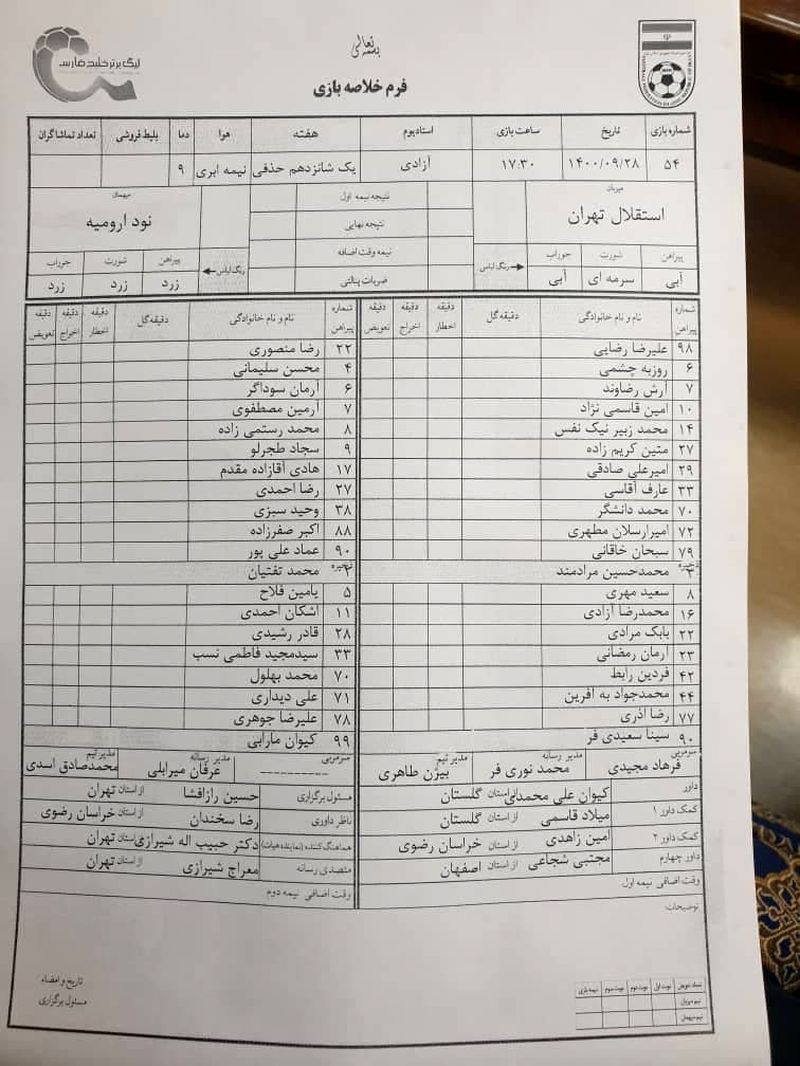 بسمه تعالی
لیگ برتر خلیج فارس
فرم خلاصه بازی
شماره بازی تاریخ ساعت بازی استادیوم هفته هوا دما بلیط فروشی تعداد تماشاگران
۵۴ ۱۴۰۰/۰۹/۲۸ ۱۷:۳۰ آزادی یک شانزدهم حذفی نیمه ابری ۹
میزبان
استقلال تهران
پیراهن شورت جوراب
آبی سرمه ای آبی
رنگ لباس
نتیجه نیمه اول
نتیجه نهایی
نیمه وقت اضافه
ضربات پنالتی
میهمان
نود ارومیه
رنگ لباس
پیراهن شورت جوراب
زرد زرد زرد
شماره پیراهن نام و نام خانوادگی دقیقه گل دقیقه اخطار دقیقه اخراج دقیقه تعویض
۹۸ علیرضا رضایی
۶ روزبه چشمی
۷ آرش رضاوند
۱۰ امین قاسمی نژاد
۱۴ محمد زبیر نیک نفس
۲۷ متین کریم زاده
۲۹ امیرعلی صادقی
۳۳ عارف آقاسی
۷۰ محمد دانشگر
۷۲ امیرارسلان مطهری
۷۹ سبحان خاقانی
محمدحسین مرادمند
۸ سعید مهری
۱۶ محمدرضا آزادی
۲۲ بابک مرادی
۲۳ آرمان رمضانی
۴۲ فردین رابط
۴۴ محمدجواد به آفرین
۷۷ رضا آذری
۹۰ سینا سعیدی فر
سرمربی فرهاد مجیدی مدیر رسانه محمد نوری فر مدیر تیم بیژن طاهری
شماره پیراهن نام و نام خانوادگی دقیقه گل دقیقه اخطار دقیقه اخراج دقیقه تعویض
۲۲ رضا منصوری
۴ محسن سلیمانی
۶ آرمان سوداگر
۷ آرمین مصطفوی
۸ محمد رستمی زاده
۹ سجاد طجرلو
۱۷ هادی آقازاده مقدم
۲۷ رضا احمدی
۳۸ وحید سبزی
۸۸ اکبر صفرزاده
۹۰ عماد علی پور
محمد تفتیان
۵ یامین فلاح
۱۱ اشکان احمدی
۲۸ قادر رشیدی
۳۳ سیدمجید فاطمی نسب
۷۰ محمد بهلول
۷۱ علی دیداری
۷۸ علیرضا جوهری
۹۹ کیوان مارابی
سرمربی ---------- مدیر رسانه عرفان میرابلی مدیر تیم محمدصادق اسدی
داور کیوان علی محمدی از استان گلستان
کمک داور ۱ میلاد قاسمی از استان گلستان
کمک داور ۲ امین زاهدی از استان خراسان رضوی
داور چهارم مجتبی شجاعی از استان اصفهان
وقت اضافی نیمه اول
مسئول برگزاری حسین رازافشا از استان تهران
ناظر داوری رضا سخندان از استان خراسان رضوی
هماهنگ کننده (نماینده هیات) دکتر حبیب اله شیرازی از استان تهران
متصدی رسانه معراج شیرازی از استان تهران
وقت اضافی نیمه دوم
توضیحات:
تاریخ و امضاء
مسئول برگزاری
تعداد تعویض نوبت اول نوبت دوم نوبت سوم نیمه بازی
تیم میزبان
تیم میهمان